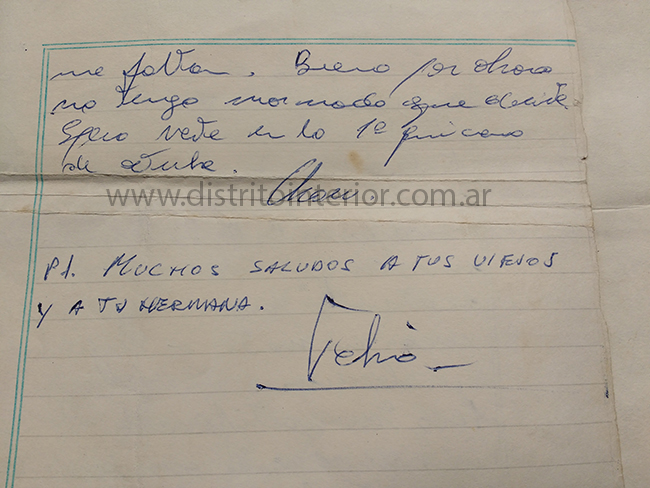 me faltan. Bueno por ahora
no tengo más nada que decirte.
Espero verte en la 1ª quincena
de
Chau.
www.distritointerior.com.ar
Pd. MUCHOS SALUDOS A TUS VIEJOS
Y A TU HERMANA.